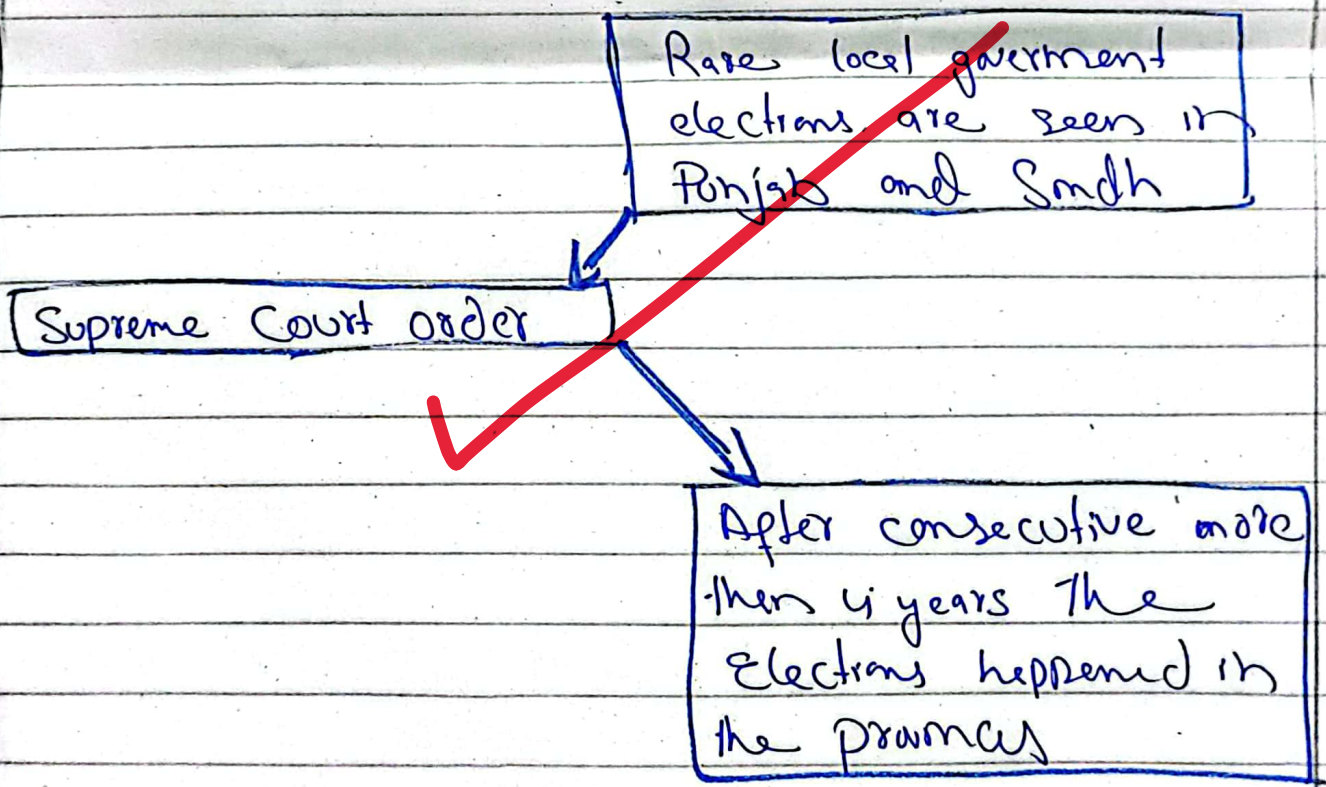 Rare local goverment
elections are seen in
Punjab and Sindh
Supreme Court order
After consecutive more
then 4 years The
Elections heppened in
the provinces